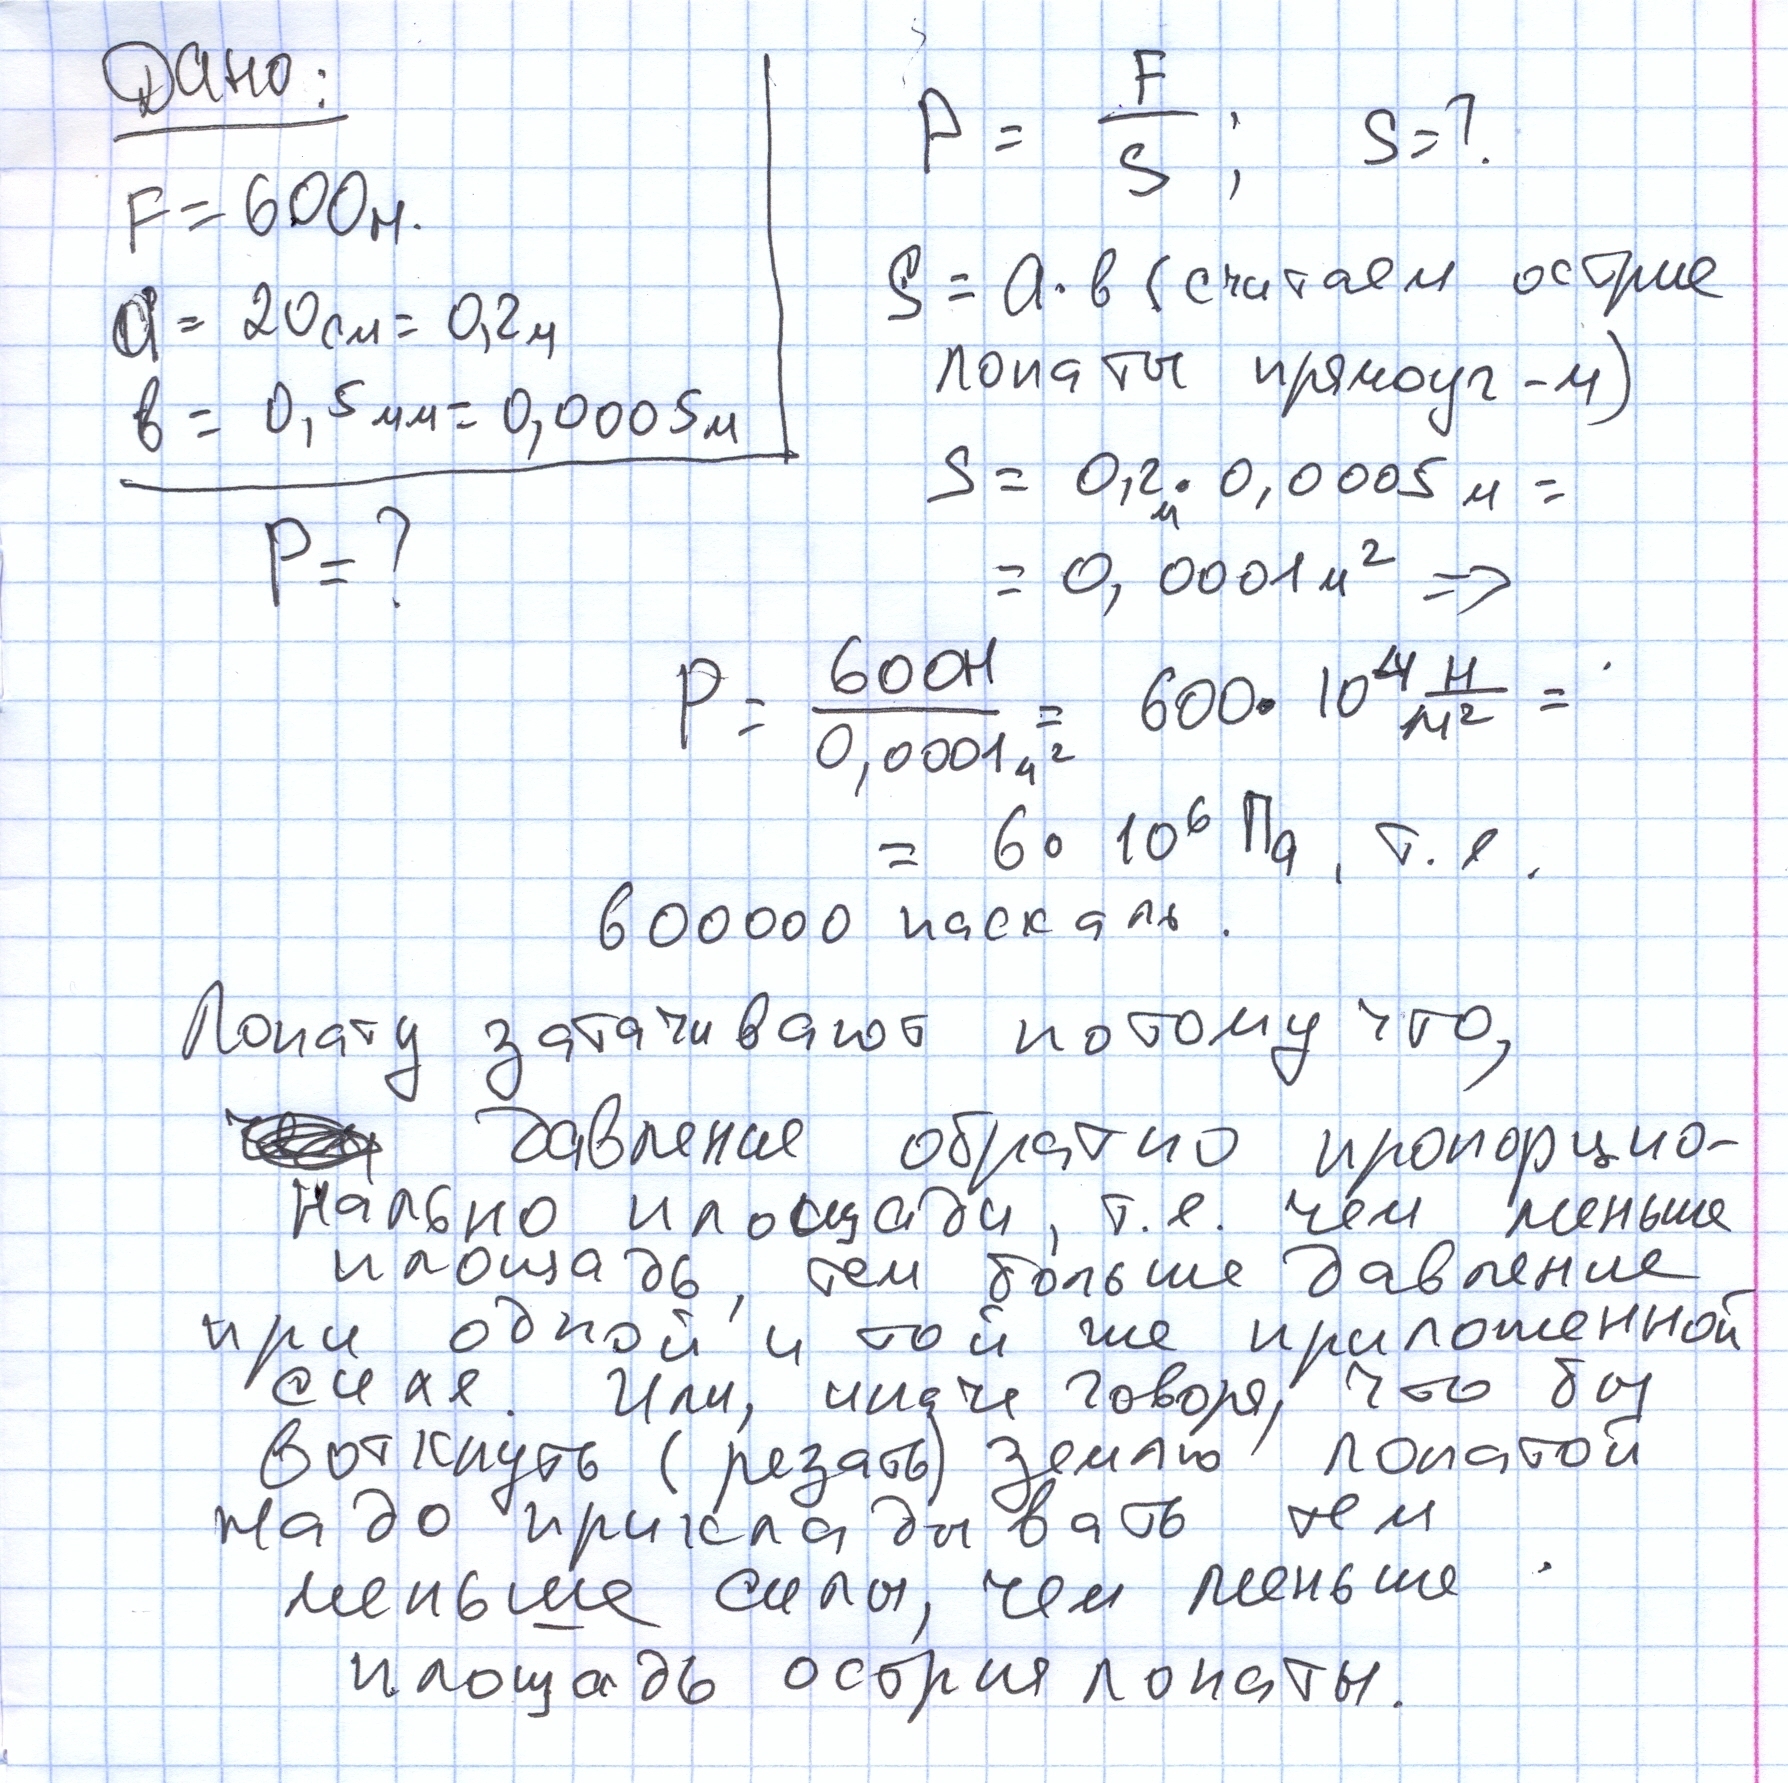 Дано:
F = 600н.
a = 20см = 0,2м
в = 0,5мм = 0,0005м
P = ?
P = F/S; S = ?
S = a · в (считаем острие
лопаты прямоуг-м)
S = 0,2м · 0,0005м =
= 0,0001м² =>
P = 600Н/0,0001м² = 600 · 10⁴ Н/м² =
= 6 · 10⁶ Па, т.е.
600000 паскаль.
Лопату затачивают потому что,
давление обратно пропорцио-
нально площади, т.е. чем меньше
площадь, тем больше давление
при одной и той же приложенной
силе. Или, иначе говоря, что бы
воткнуть (резать) землю лопатой
надо прикладывать тем
меньше силы, чем меньше
площадь острия лопаты.